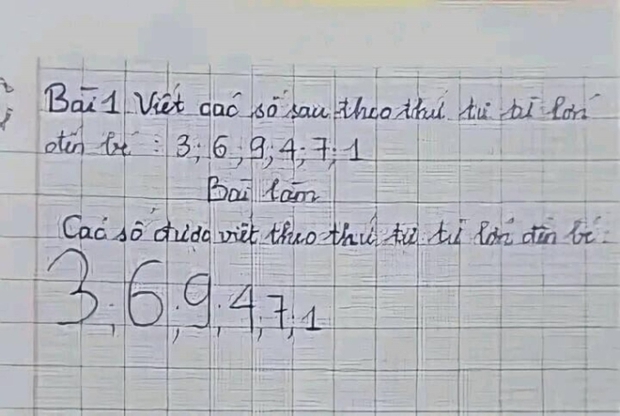 Bài 1 Viết các số sau theo thứ tự từ lớn
đến bé : 3; 6; 9; 4; 7; 1
Bài làm
Các số được viết theo thứ tự từ lớn đến bé:
3; 6; 9; 4; 7; 1